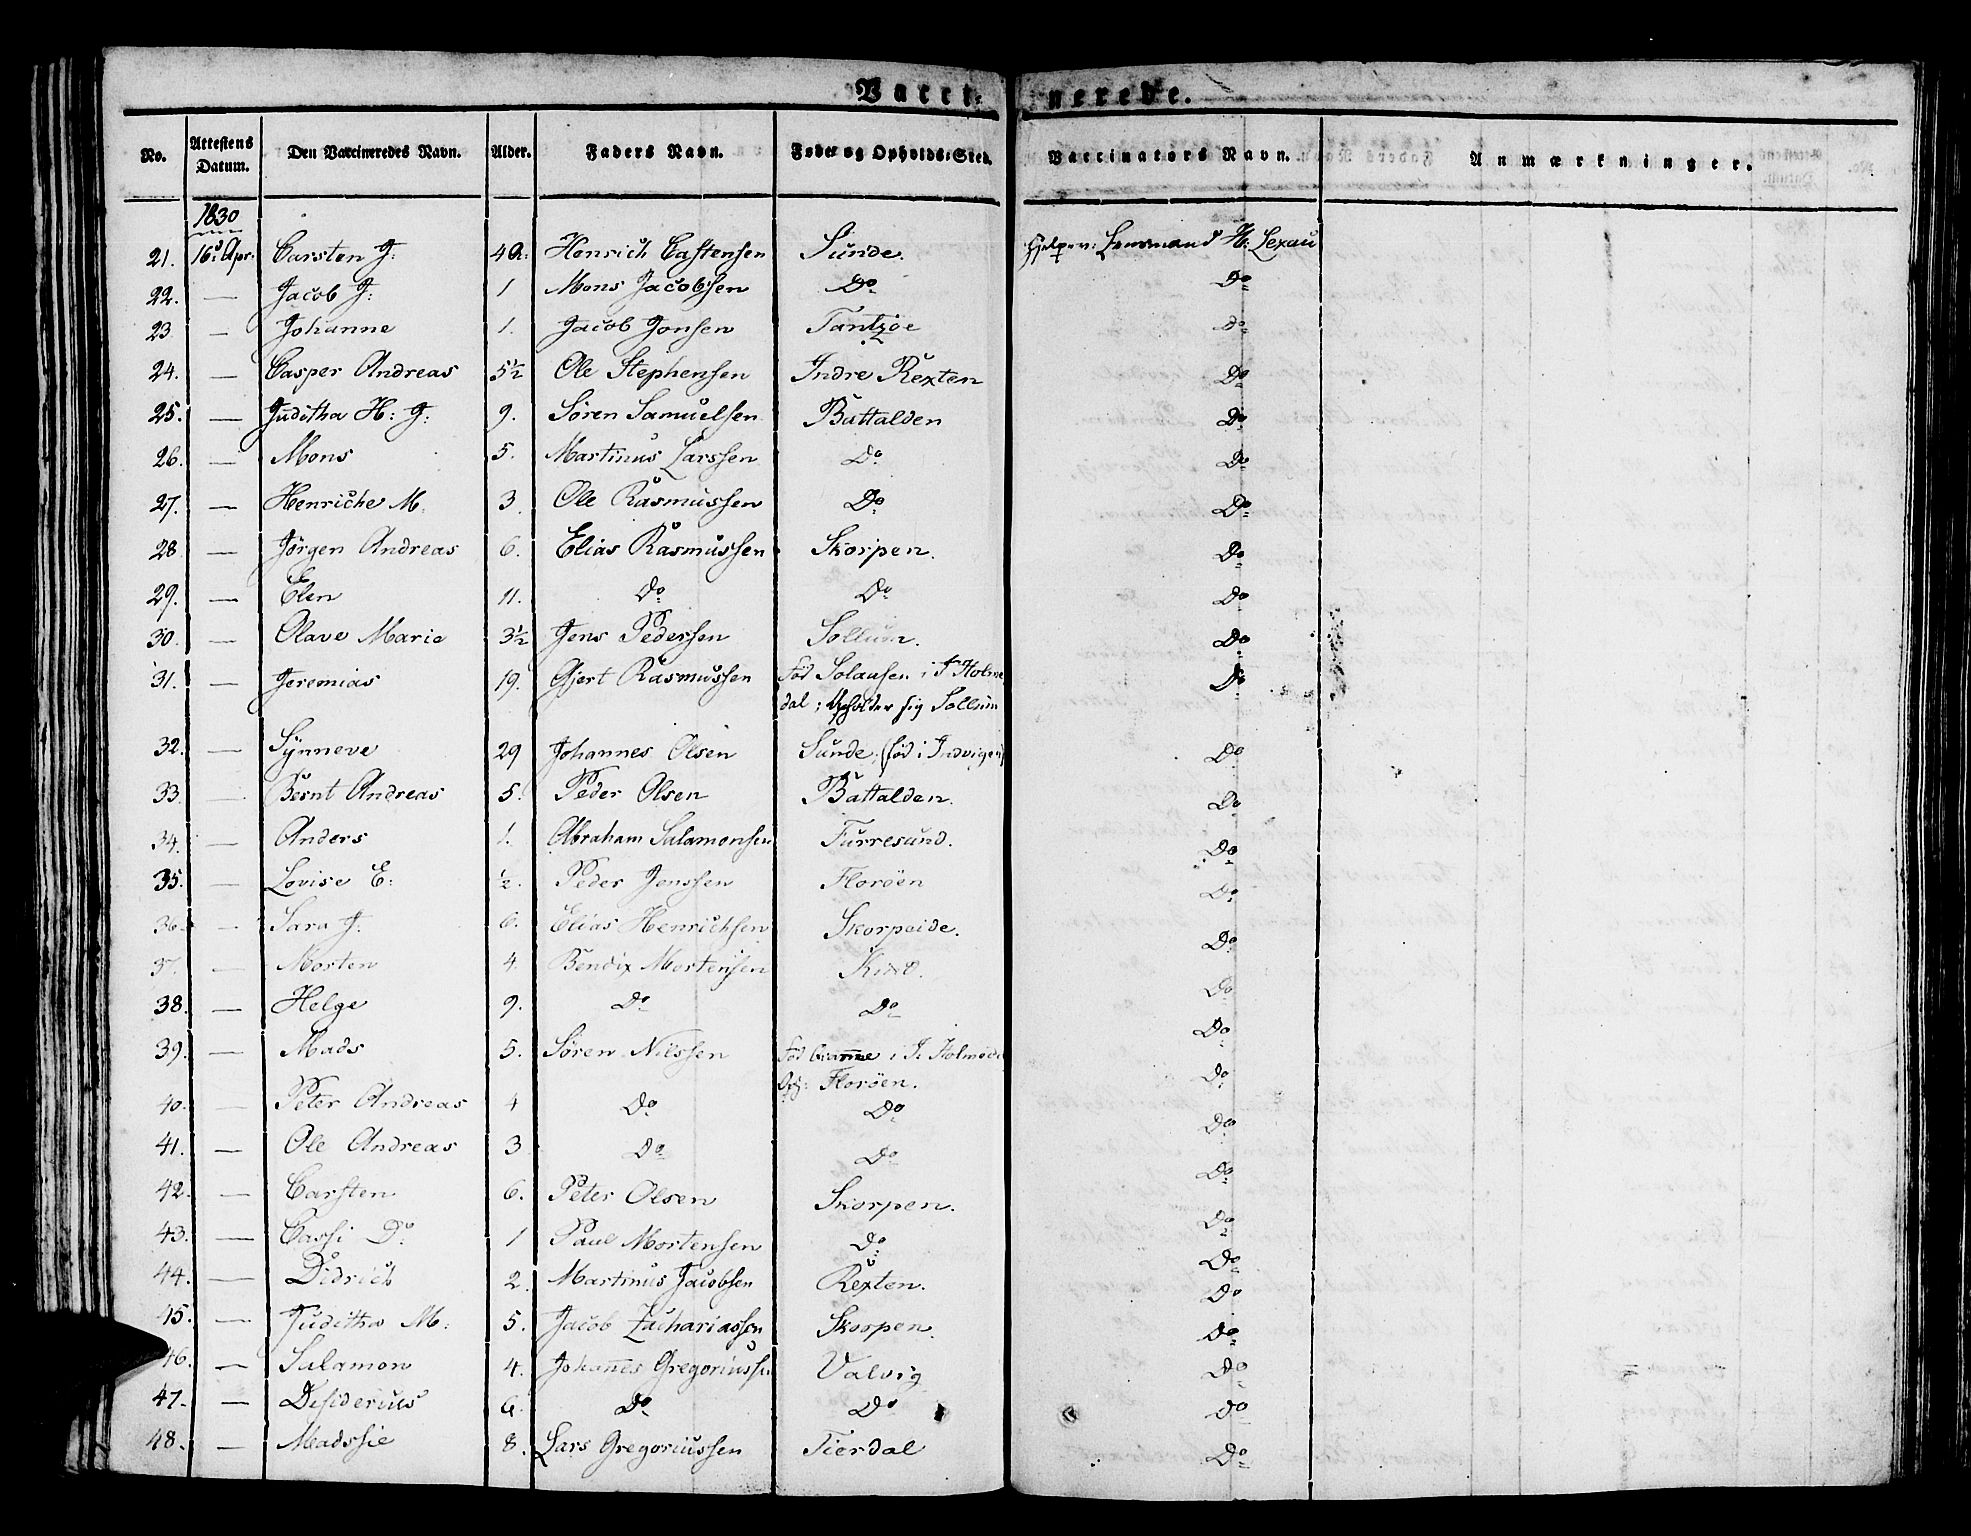 Vacci- nerede.
No. Attestens Datum. Den Vaccineredes Navn. Alder. Faders Navn. Føde- og Opholds-Sted. Vaccinators Navn. Anmærkninger.
1830
21. 16. Apr. Carsten J: 4 Henrich Castensen Sunde. Hjelpev: Lensmand H: Lexau
22. — Jacob J: 1 Mons Jacobsen Do Do
23 — Johanne 1. Jacob Jonsen Do
24. — Casper Andreas 5½ Ole Stephensen Indre Rexten Do
25. — Juditha H: J: 9. Søren Samuelsen Battalden Do
26. — Mons 5. Martinus Larssen Do Do
27. — Henriche M. 3. Ole Rasmussen Do Do
28 — Jörgen Andreas 6. Elias Rasmussen Skorpen. Do
29. — Elen 11. Do Do Do
30. — Olave Marie 3½ Jens Pedersen Sollum. Do
31. — Jeremias 19. Gjert Rasmussen fød Solausen i I Holme Do
dal; opholder sig Sollum
32. — Synneve 29 Johannes Olsen Sunde, (fød i Indvigen) Do
33. Bernt Andreas 5. Peder Olsen Battalden. Do
34. — Anders 1. Abraham Salamonsen Furresund. Do
35. — Lovise E: ½. Peder Jenssen Florøen Do
36. — Sara J. 6. Elias Henrichsen Skorpeide. Do
37. — Morten 4. Bendix Mortensen Kind. Do
38. — Helge 9. Do Do Do
39. — Mads 5. Søren Nilssen fød i I. Holmed Do
Florøen.
40. — Peter Andreas 4 Do Do Do
41. — Ole Andreas 3 Do Do Do
42. — Carsten 6. Peter Olsen Skorpen. Do
43. — Cassi Do 1 Paul Mortensen Do Do
44. — Didrich 2. Martinus Jacobsen Rexten. Do
45. — Juditha M: 5. Jacob Zachariassen Skorpen. Do
46. — Salamon 4. Johannes Gregoriussen Valvig Do
47. — Desiderius 6. Do Do Do
48. — Madssie 8. Lars Gregoriussen Tierdal Do